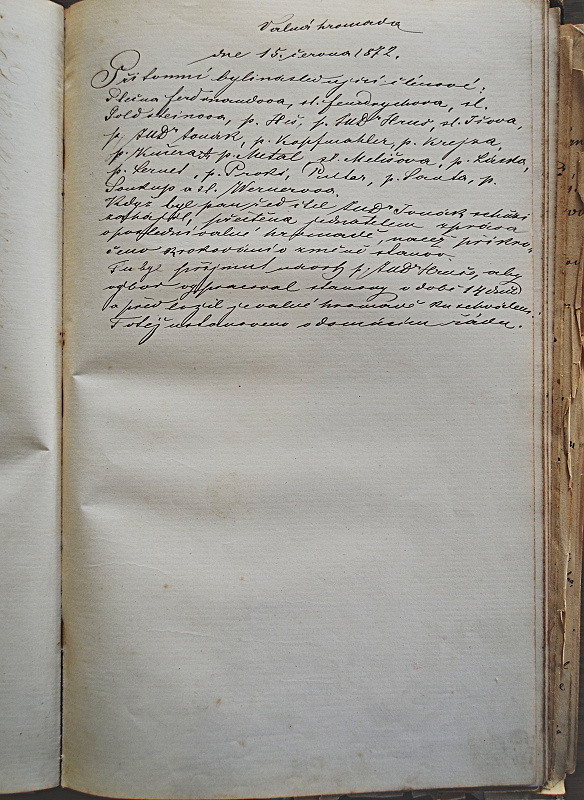 Valná hromada
dne 15. června 1872.
Přítomni byli následující členové:
slečna Ferdinandova, sl. Fendrychova, sl.
Goldsteinova, p. Heš, p. JUDr Hruš, sl. Tšova,
p. JUDr Jonák, p. Kopfmahler, p. Krejsa,
p. Kučera A. p. Metal, sl. Melišova, p. Lásda,
p. Černet, p. Proks, Putar, p. Santa, p.
Soukup a sl. Wernerova.
Když byl pan předseda JUDr Jonák schůzi
zahájil, přečtena jednatelem zpráva
o poslední valné hromadě, načež přikro-
čeno k rokování o změně stanov.
Tu byl přijmut návrh p. JUDr Hruše, aby
výbor vypracoval stanovy v době 14 dnů
a předložil je valné hromadě ku schválení.
Totéž ustanoveno o domácím řádu.